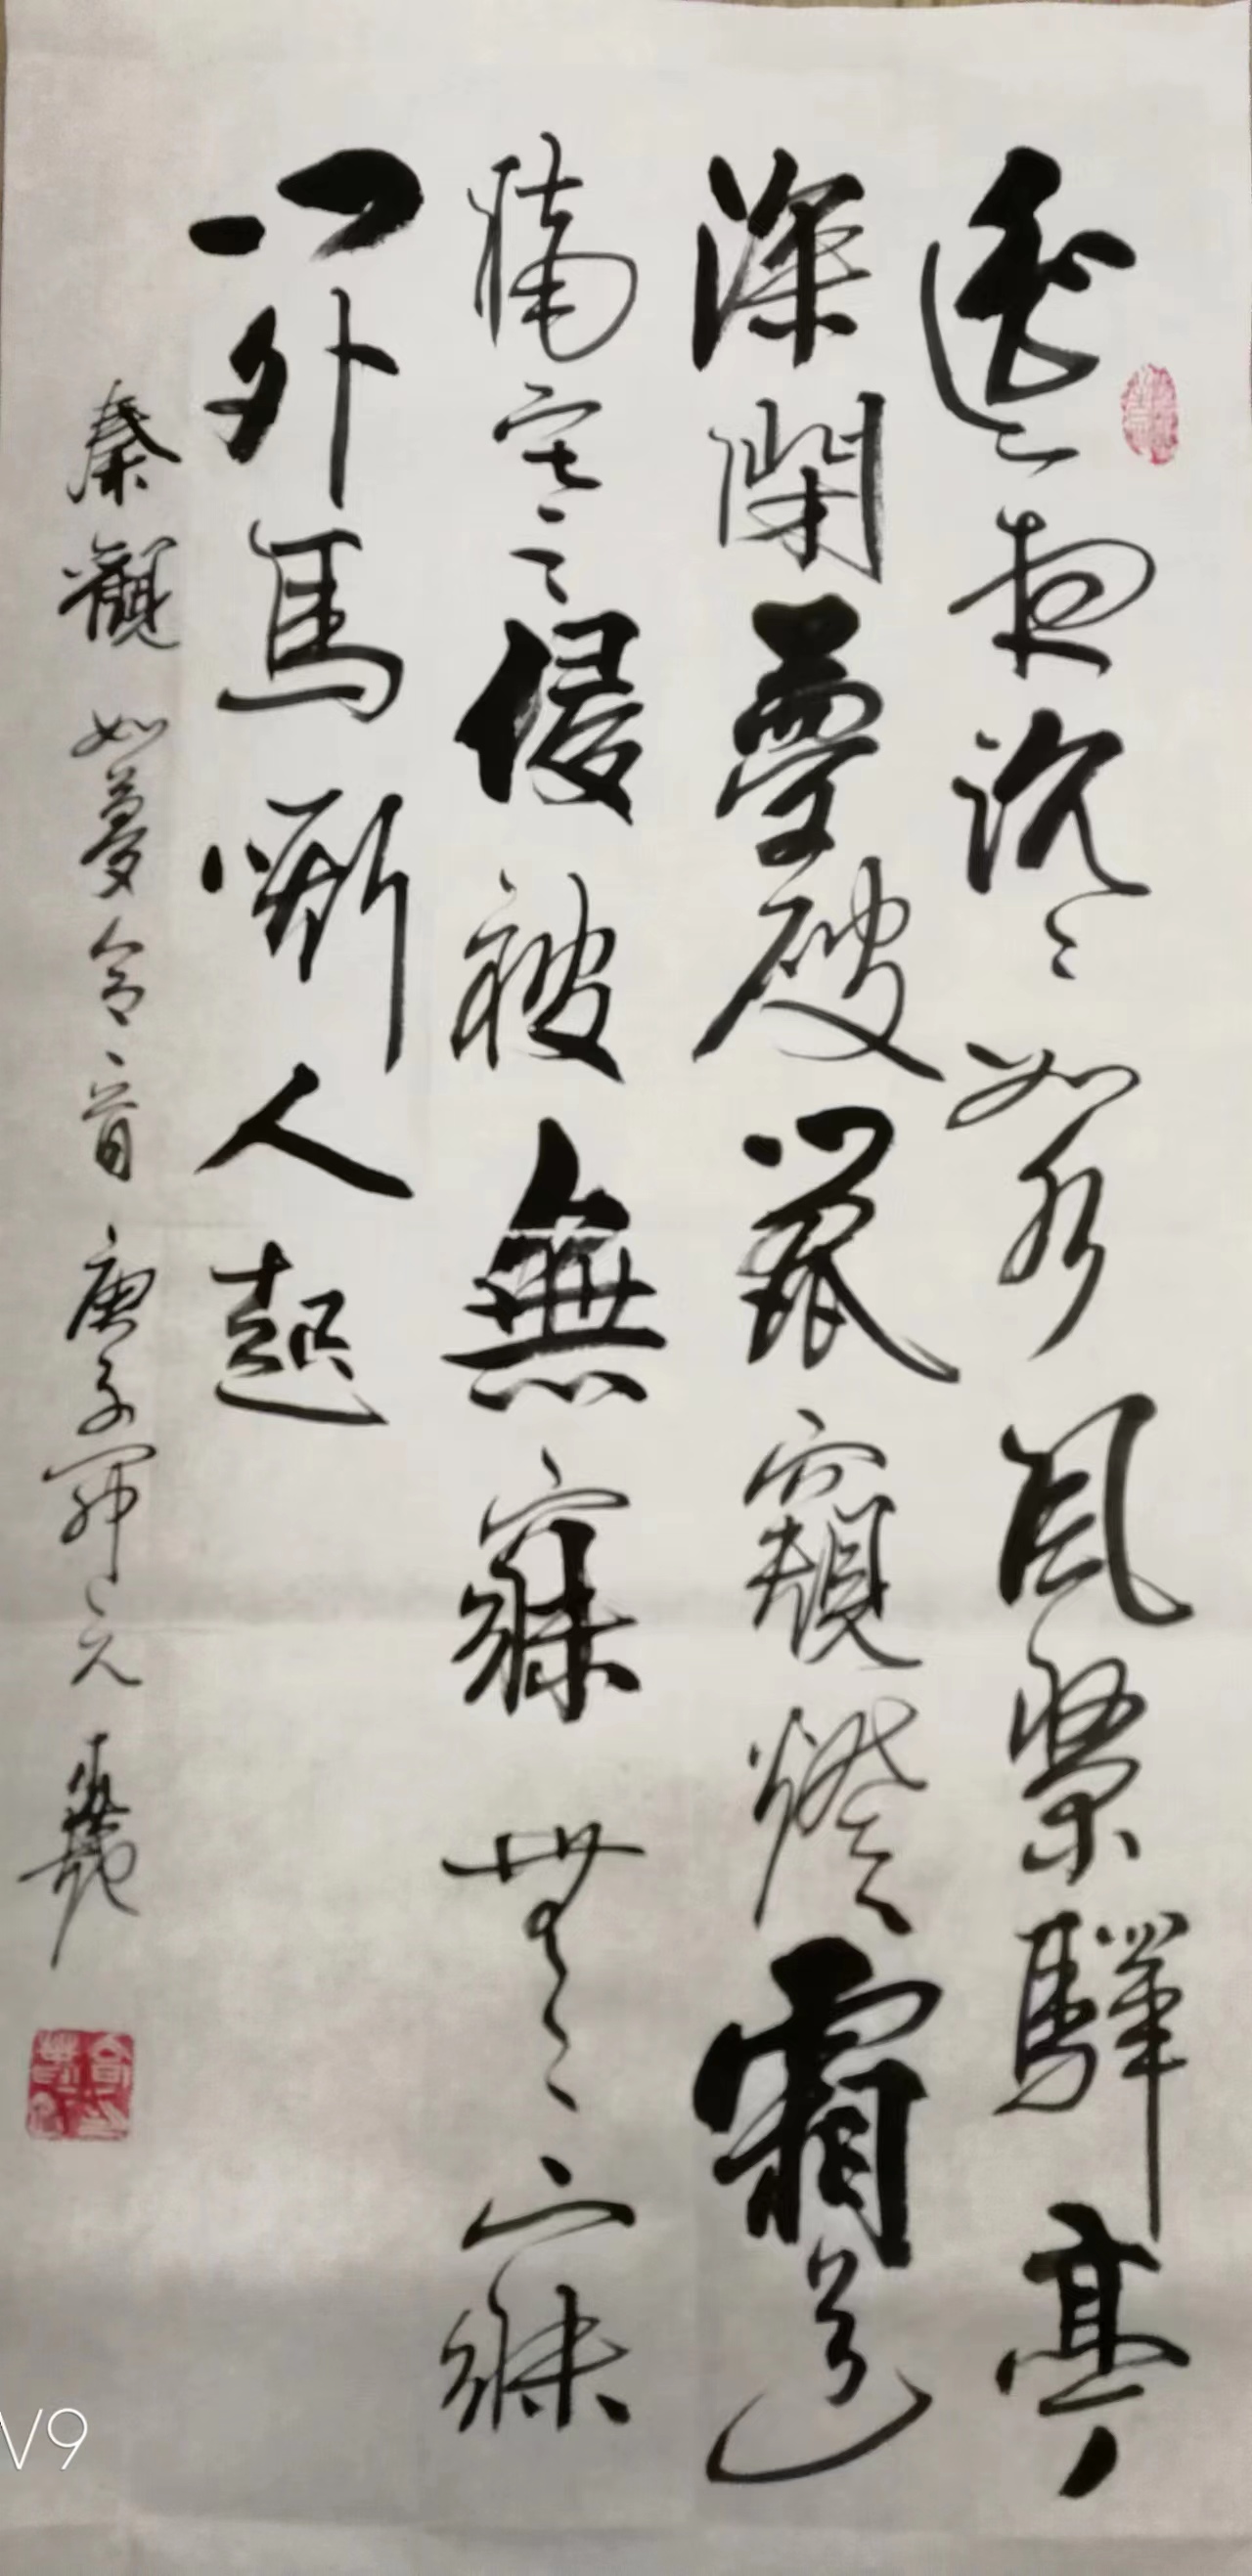 遥夜沉沉如水風緊驛亭
深閉夢破鼠窺燈霜送
曉寒侵被無寐無寐
門外馬嘶人起
秦觀如夢令一首庚子
V9